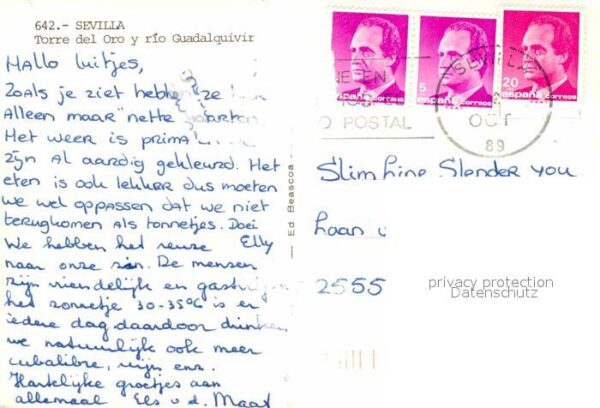 642.- SEVILLA
Torre del Oro y río Guadalquivir
Hallo luitjes,
Zoals je ziet hebben ze
Alleen maar "nette
Het weer is prima
zijn Al aardig gekleurd. Het
eten is ook lekker dus moeten
we wel oppassen dat we niet
terugkomen als tonnetjes. Doei
We hebben het reuze Elly
naar onze zin. De mensen
zijn vriendelijk en
het zonnetje 30-35°C is er
iedere dag daardoor drinken
we natuurlijk ook meer
cubalibre, wijn enz.
Hartelijke groetjes aan
allemaal Els v.d. Maat
Ed Beascoa
5
españa correos
20
españa correos
O POSTAL
OCT
89
Slim Line Slender You
Laan
2555
privacy protection
Datenschutz